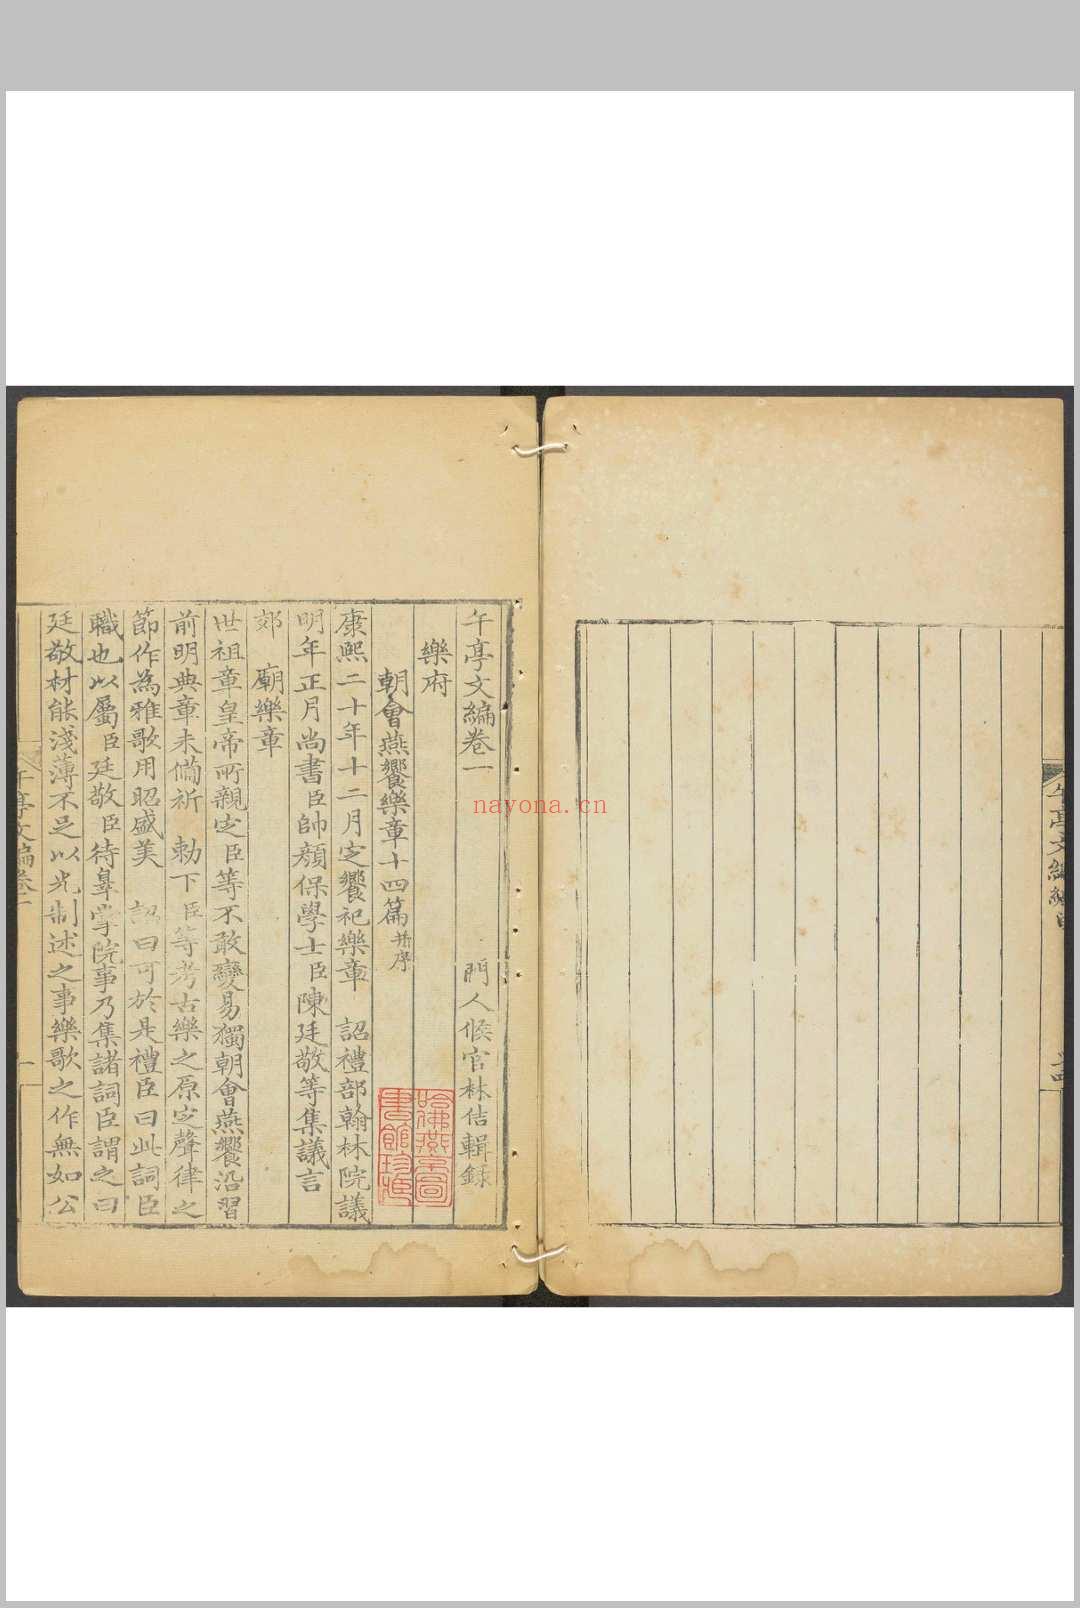 午亭文編卷一
門人候官林佶輯錄
樂府
朝會燕饗樂章十四篇并序
康熙二十年十二月定饗祀樂章 詔禮部翰林院議
明年正月尚書臣帥顏保學士臣陳廷敬等集議言
郊 廟樂章
世祖章皇帝所親定臣等不敢變易獨朝會燕饗沿習
前明典章未備祈 勅下臣等考古樂之原定聲律之
節作為雅歌用昭盛美 詔曰可於是禮臣曰此詞臣
職也以屬臣廷敬臣待辠掌院事乃集諸詞臣謂之曰
廷敬材能淺薄不足以光制述之事樂歌之作無如公
午亭文編卷一
一
哈佛燕京圖
書館珍藏
nayona.cn